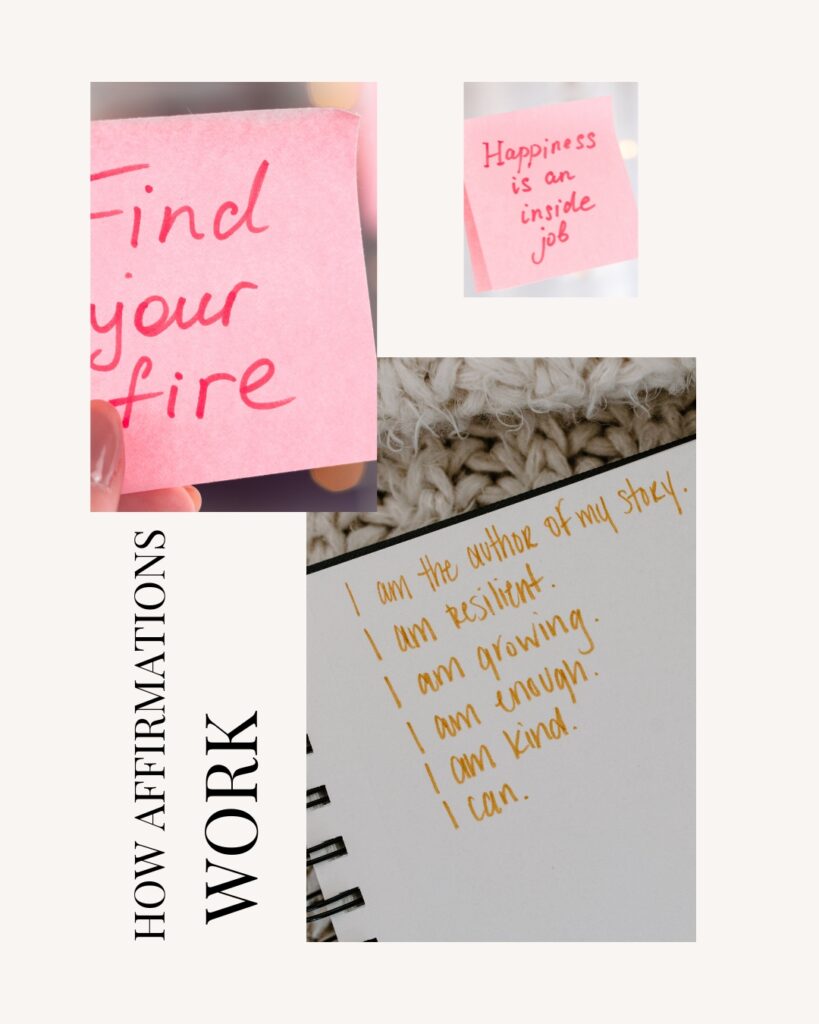 Find
your
fire
Happiness
is an
inside
job
I am the author of my story.
I am resilient.
I am growing.
I am enough.
I am kind.
I can.
HOW AFFIRMATIONS
WORK